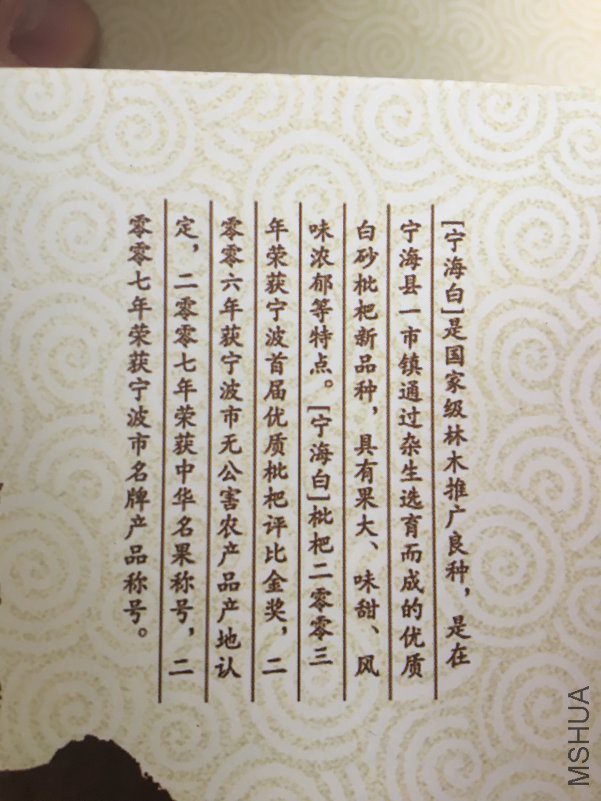 [宁海白]是国家级林木推广良种，是在
宁海县一市镇通过杂生选育而成的优质
白砂枇杷新品种，具有果大、味甜、风
味浓郁等特点。[宁海白]枇杷二零零三
年荣获宁波首届优质枇杷评比金奖，二
零零六年获宁波市无公害农产品产地认
定，二零零七年荣获中华名果称号，二
零零七年荣获宁波市名牌产品称号。
MSHUA